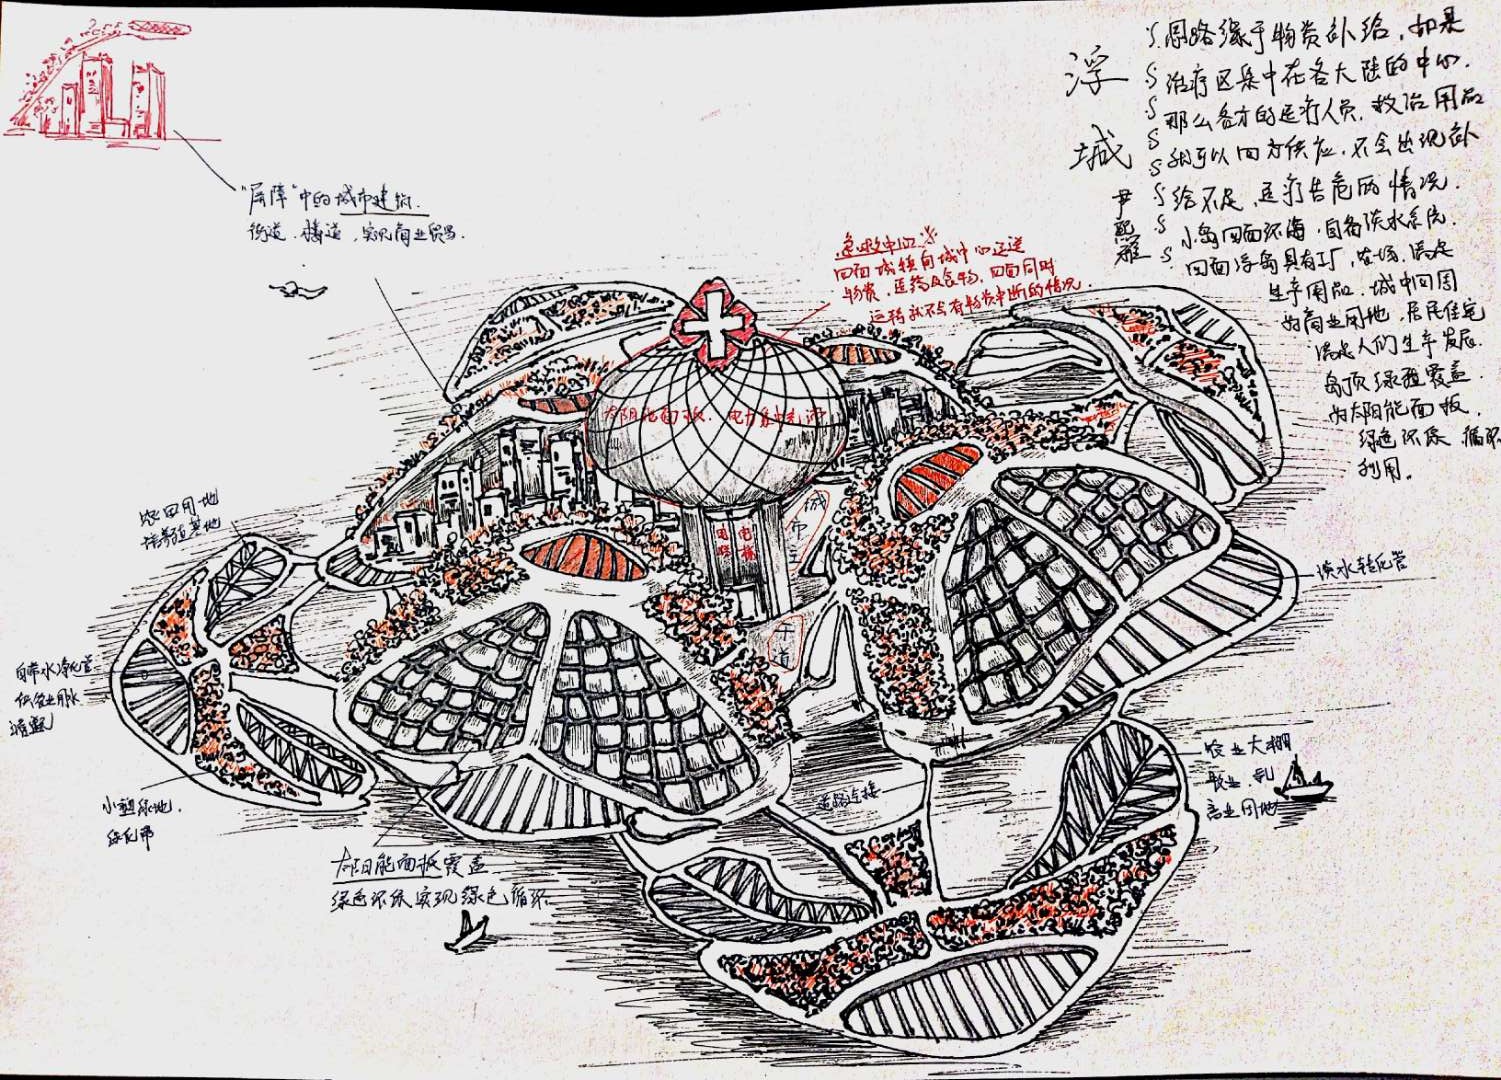 浮城
尹熙雅
思路缘于物资补给，如果
治疗区集中在各大陆的中心．
那么各方的医疗人员．救治用品
就可以四方供应．不会出现补
给不足，医疗告危的情况．
小岛四面环海，自备淡水系统．
四面浮岛具有工厂，农场，满足
生产用品．城中四周
为商业用地，居民住宅
满足人们生产发展．
岛顶绿植覆盖．
为太阳能面板．
绿色环保 循环
利用．
"屏障"中的城市建筑．
街道．楼道，实现商业贸易．
急救中心
四面城镇向城中心运送
物资，医药及食物，四面同时
运转就不会有物资中断的情况
太阳能面板．电力集中
电梯
城市
农田用地
培养殖基地
淡水转化管
自带水净化管
供农业用水
灌溉
小型绿地．
绿化带
太阳能面板覆盖
绿色环保实现绿色循环
道路连接
农业大棚
商业用地